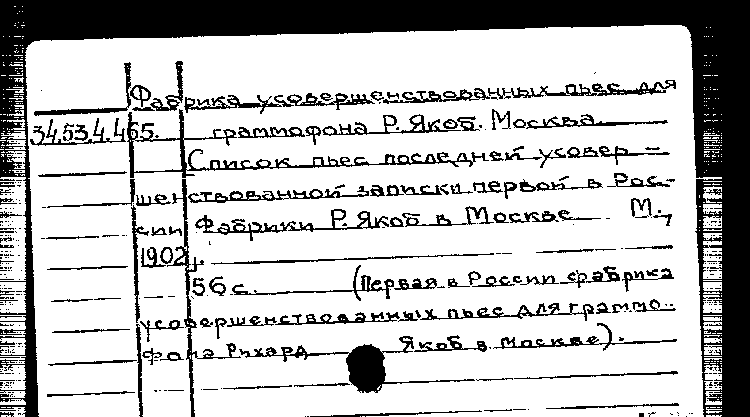 Фабрика усовершенствованных пьес для
34.53.4.465. граммофона Р. Якоб. Москва.
Список пьес последней усовер –
шенствованной записки первой в Рос-
сии Фабрики Р. Якоб в Москве. М.,
1902 г.
56 с. (Первая в России фабрика
усовершенствованных пьес для граммо-
фона Рихард Якоб в Москве).